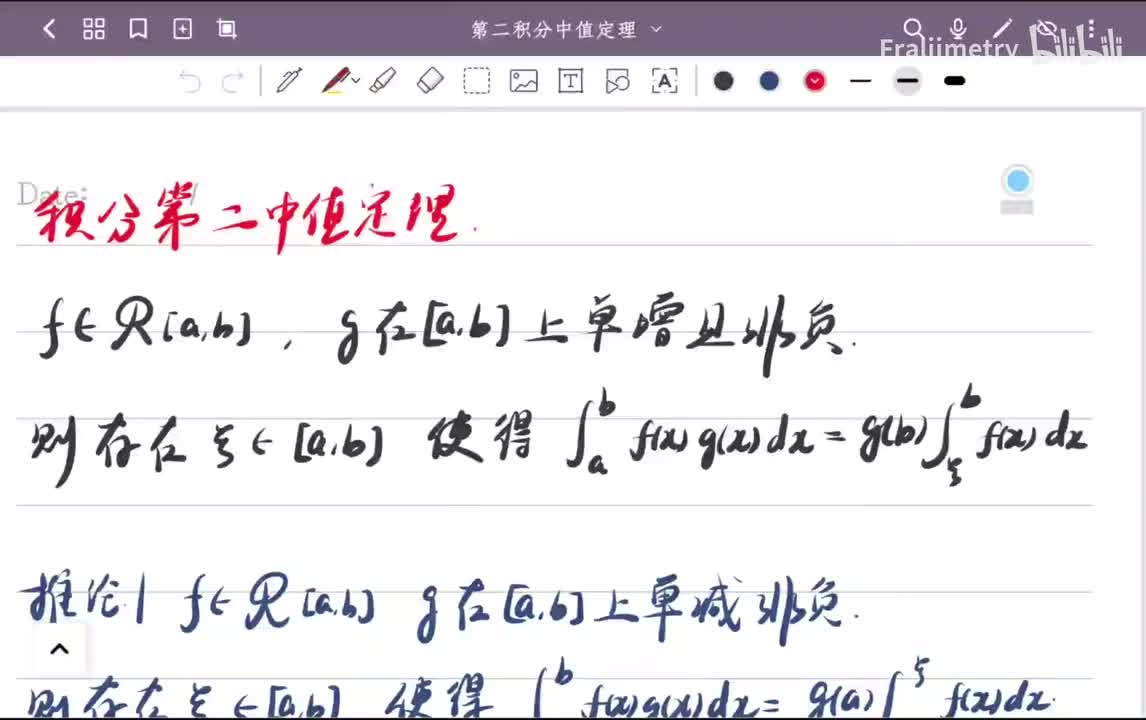 第二积分中值定理
Fraljimetry bilibili
Date: /
积分第二中值定理.
f∈R[a,b], g在[a,b]上单增且非负.
则存在ξ∈[a,b] 使得 ∫_a^b f(x)g(x)dx = g(b)∫_ξ^b f(x)dx
推论1 f∈R[a,b] g在[a,b]上单减非负.
则存在ξ∈[a,b] 使得 ∫^b f(x)g(x)dx = g(a)∫^ξ f(x)dx.